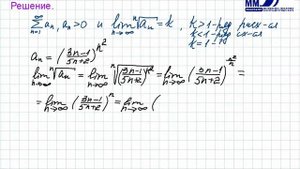 Решение.
ММ
∑ₙ₌₁^∞ aₙ, aₙ>0 и lim_{n→∞} ⁿ√aₙ = k, k>1 - ряд расх-ся
k<1 - ряд сх-ся
k=1 - ?
aₙ = ((3n-1)/(5n+2))^{n²}
lim_{n→∞} ⁿ√aₙ = lim_{n→∞} ⁿ√((3n-1)/(5n+2))^{n²} = lim_{n→∞} ((3n-1)/(5n+2))^{n²/n} =
= lim_{n→∞} ((3n-1)/(5n+2))^n = lim_{n→∞} (